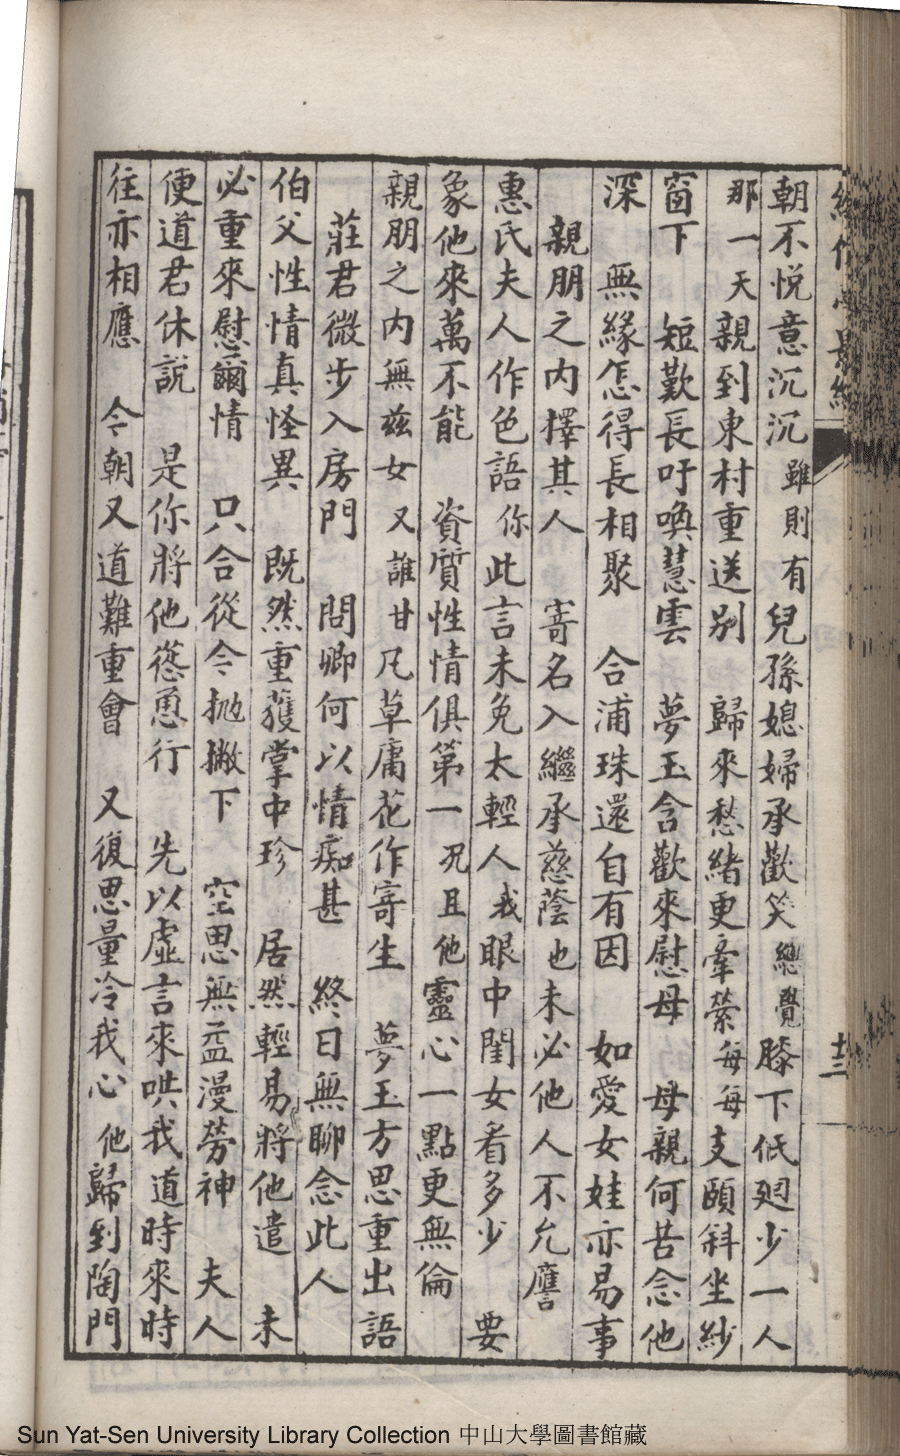 朝不悅意沉沉雖則有兒孫媳婦承歡笑總覺膝下低廻少一人
那一天親到東村重送別　歸來愁緒更牽縈每每支頤斜坐紗
窗下　短歎長吁喚慧雲　夢玉含歡來慰母　母親何苦念他
深　無緣怎得長相聚　合浦珠還自有因　如愛女娃亦易事
親朋之內擇其人　寄名入繼承慈蔭也未必他人不允譍
惠氏夫人作色語你此言未免太輕人我眼中閨女看多少　要
象他來萬不能　資質性情俱第一況且他靈心一點更無倫
親朋之內無兹女又誰甘凡草庸花作寄生　夢玉方思重出語
莊君微步入房門　問卿何以情痴甚　終日無聊念此人
伯父性情真怪異　既然重獲掌中珍　居然輕易將他遣　未
必重來慰爾情　只合從今拋撇下　空思無益漫勞神　夫人
便道君休說　是你將他慫恿行　先以虛言來哄我道時來時
往亦相應　今朝又道難重會　又復思量冷我心他歸到陶門
十三
Sun Yat-Sen University Library Collection 中山大學圖書館藏